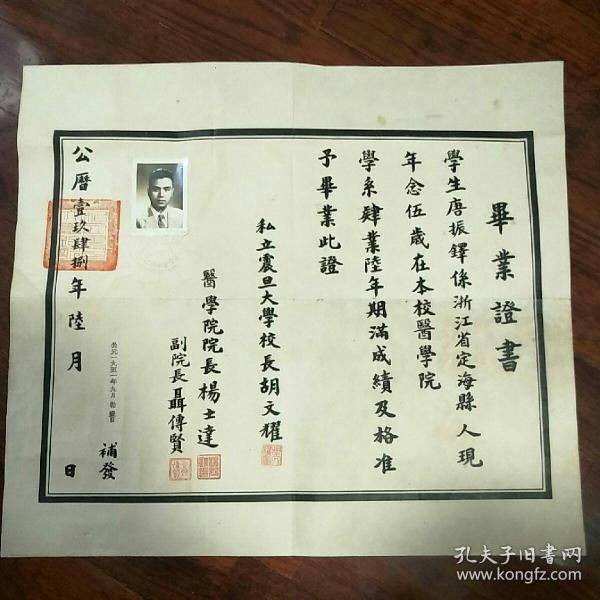 畢業證書
學生唐振鐸係浙江省定海縣人現
年念伍歲在本校醫學院
學系肄業陸年期滿成績及格准
予畢業此證
私立震旦大學校長胡文耀
醫學院院長楊士達
副院長聶傳賢
公曆壹玖肆捌年陸月日
公元一九五一年九月
補發
孔夫子旧书网
www.kongfz.com